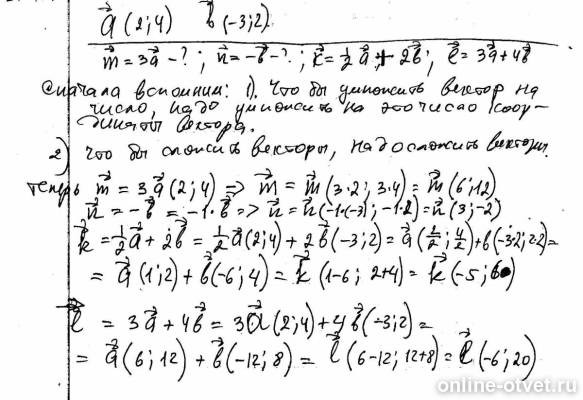 a⃗ (2; 4) b⃗ (-3; 2)
m⃗ = 3a⃗ - ? ; n⃗ = -b⃗ - ? ; k⃗ = ½ a⃗ + 2b⃗ ; l⃗ = 3a⃗ + 4b⃗
Сначала вспомним: 1). Что бы умножить вектор на
число, надо умножить на это число коор-
динаты вектора.
2) Что бы сложить векторы, надо сложить векторы.
Теперь m⃗ = 3a⃗ (2; 4) => m⃗ = m⃗ (3·2; 3·4) = m⃗ (6; 12)
n⃗ = -b⃗ = -1·b⃗ => n⃗ = n⃗ (-1·(-3); -1·2) = n⃗ (3; -2)
k⃗ = ½ a⃗ + 2b⃗ = ½ a⃗ (2; 4) + 2b⃗ (-3; 2) = a⃗ (2/2; 4/2) + b⃗ (-3·2; 2·2) =
= a⃗ (1; 2) + b⃗ (-6; 4) = k⃗ (1-6; 2+4) = k⃗ (-5; 6)
l⃗ = 3a⃗ + 4b⃗ = 3a⃗ (2; 4) + 4b⃗ (-3; 2) =
= a⃗ (6; 12) + b⃗ (-12; 8) = l⃗ (6-12; 12+8) = l⃗ (-6; 20)
online-otvet.ru